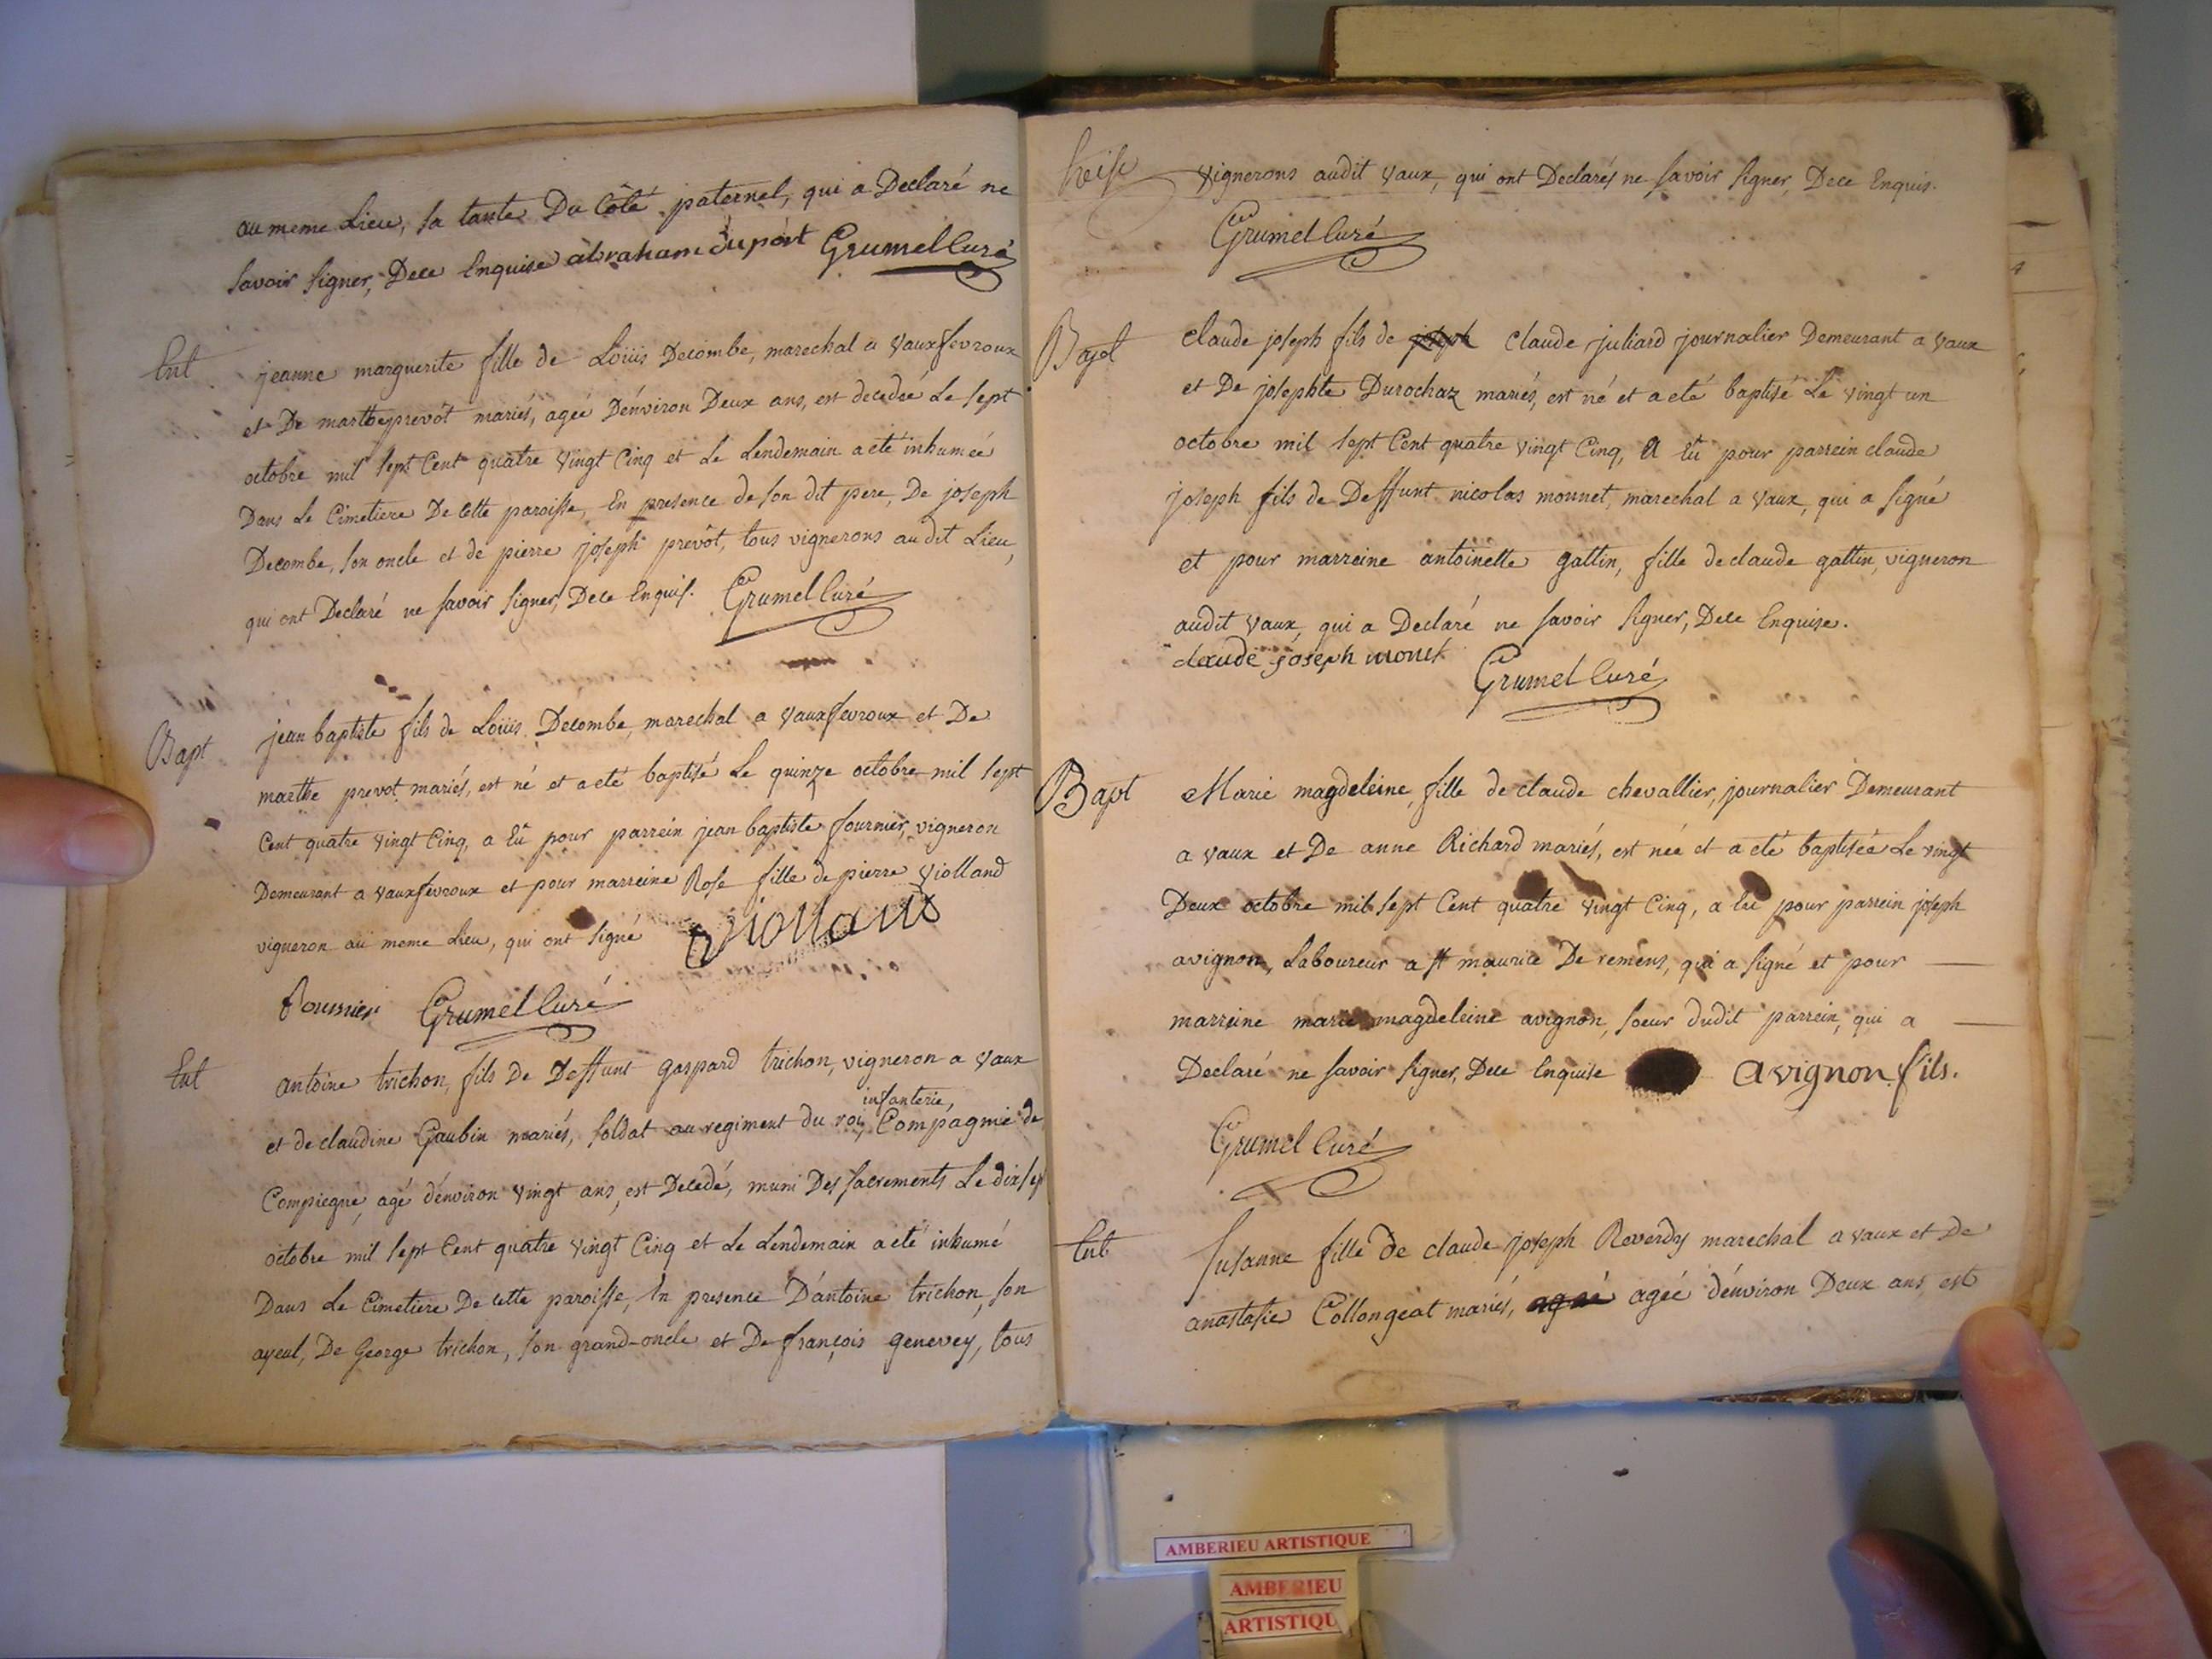 au meme Lieu, sa tante Du Côté paternel, qui a Declaré ne
savoir signer, Dece Enquise abraham dupont Grumel Curé
Ent jeanne marguerite fille de Loüis Decombe, marechal a vauxfevroux
et De marthe prevôt mariés, ageé D'énviron Deux ans, est decedeé Le sept
octobre mil sept Cent quatre vingt Cinq et Le Lendemain a eté inhumeé
Dans Le Cimetiere De cette paroisse, En presence de son dit pere, De joseph
Decombe, son oncle et de pierre joseph prevôt, tous vignerons au dit Lieu,
qui ont Declaré ne savoir signer, Dece Enquis. Grumel Curé
Bapt jean baptiste fils de Loüis Decombe, marechal a vauxfevroux et De
marthe prevot mariés, est né et a eté baptisé Le quinze octobre mil sept
Cent quatre vingt Cinq, a Eû pour parrein jean baptiste fournier, vigneron
Demeurant a vauxfevroux et pour marreine Rose fille de pierre violland
vigneron au meme Lieu, qui ont signé violland
fournier Grumel Curé
Ent antoine trichon, fils De Deffunt gaspard trichon, vigneron a vaux
infanterie,
et de claudine Gaubin mariés, soldat au regiment du roi, Compagnie de
Compiegne, agé d'énviron vingt ans, est Decedé, muni Des sacrements Le dixsept
octobre mil sept Cent quatre vingt Cinq et Le Lendemain a eté inhumé
Dans Le Cimetiere De cette paroisse, En presence D'antoine trichon, son
ayeul, De George trichon, son grand-oncle et De françois genevey, tous
treise vignerons audit vaux, qui ont Declarés ne savoir signer, Dece Enquis.
Grumel Curé
Bapt claude joseph fils de joseph claude juliard journalier Demeurant a vaux
et De josephte Durochaz mariés, est né et a eté baptisé Le vingt un
octobre mil sept Cent quatre vingt Cinq, a Eû pour parrein claude
joseph fils de Deffunt nicolas monnet, marechal a vaux, qui a signé
et pour marreine antoinette gattin, fille de claude gattin, vigneron
audit vaux, qui a Declaré ne savoir signer, Dece Enquise.
claude joseph monet Grumel Curé
Bapt Marie magdeleine, fille de claude chevallier, journalier Demeurant
a vaux et De anne Richard mariés, est neé et a eté baptiseé Le vingt
Deux octobre mil sept Cent quatre vingt Cinq, a Eû pour parrein joseph
avignon, Laboureur a st maurice De remens, qui a signé et pour
marreine marie magdeleine avignon, soeur dudit parrein, qui a
Declaré ne savoir signer, Dece Enquise avignon fils.
Grumel Curé
Ent Susanne fille de claude joseph Reverdy marechal a vaux et De
anastasie Collongeat mariés, agné ageé d'énviron Deux ans, est
AMBERIEU ARTISTIQUE
AMBERIEU
ARTISTIQU